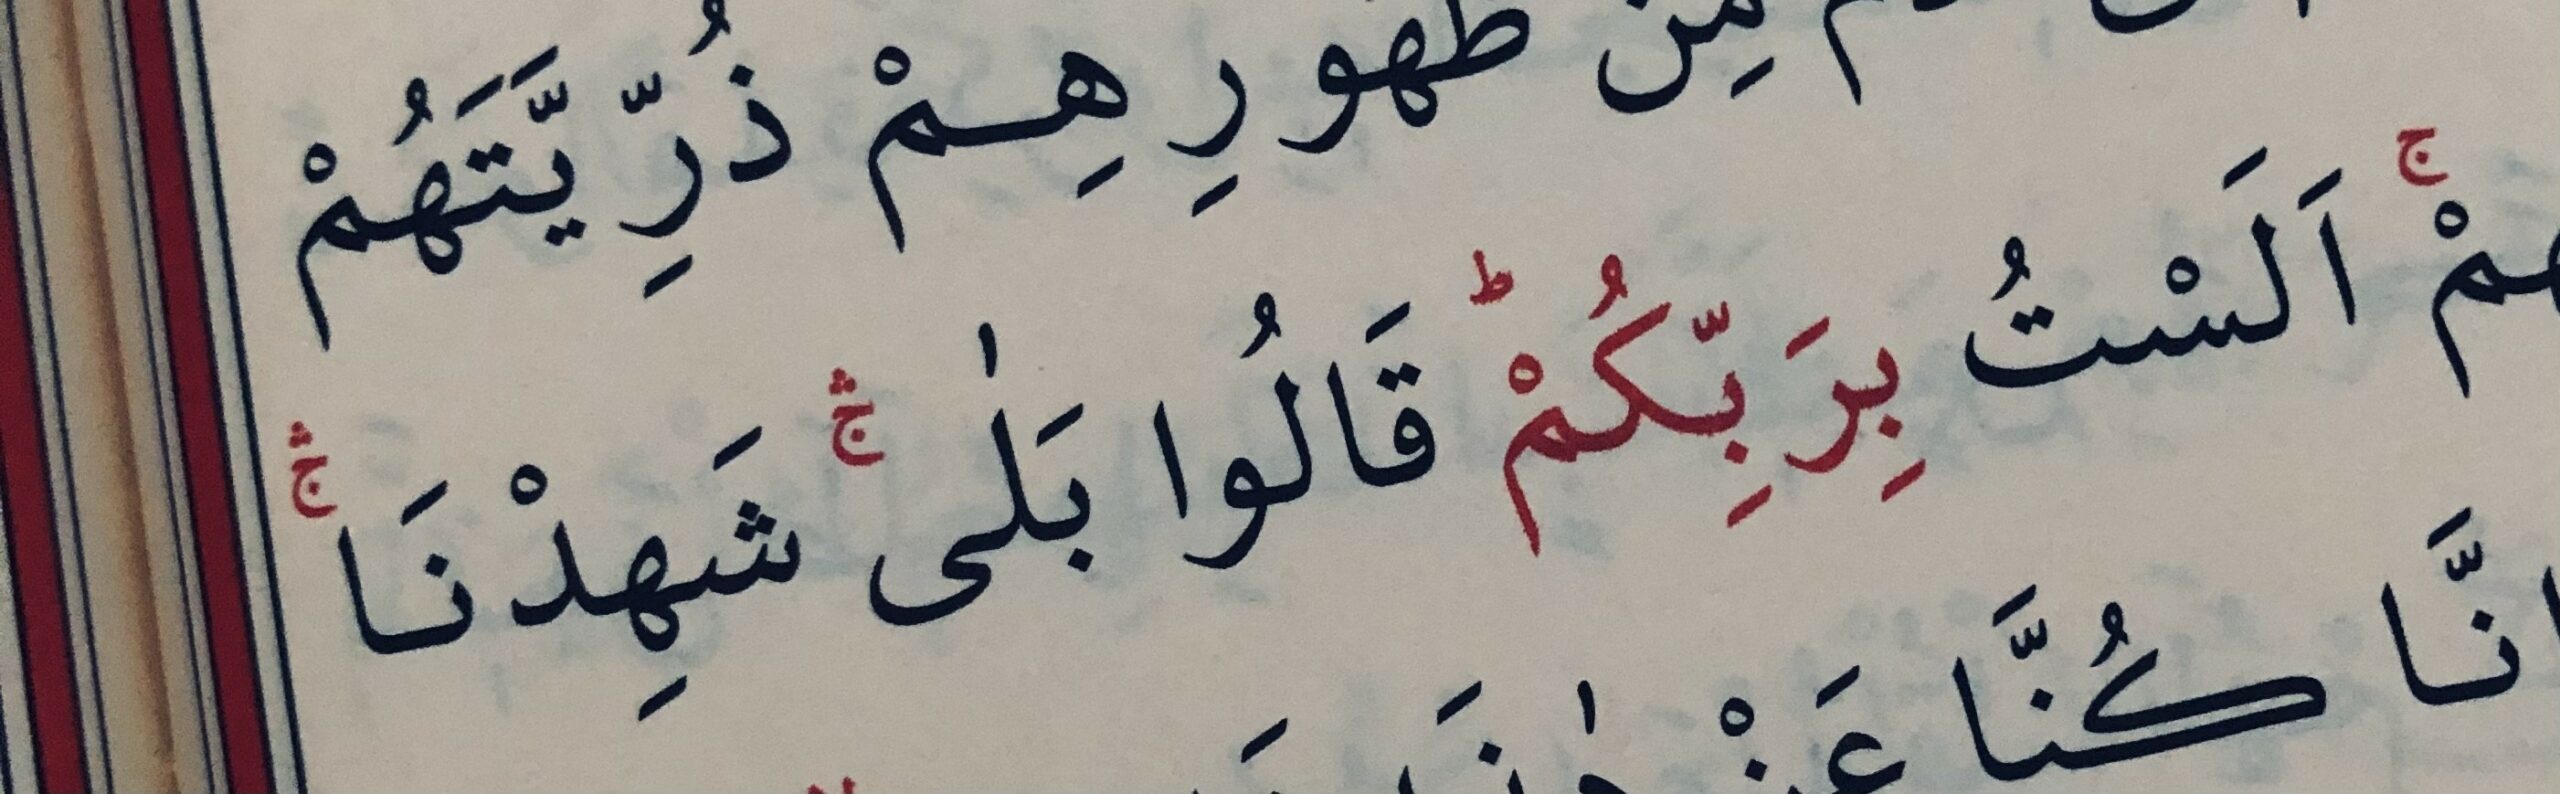 مِنْ ظُهُورِهِمْ ذُرِّيَّتَهُمْ
هُمْ ۚ اَلَسْتُ بِرَبِّكُمْ ؕ قَالُوا بَلٰى ۛۚ شَهِدْنَا ۛۚ
اِنَّا كُنَّا عَنْ هٰذَا